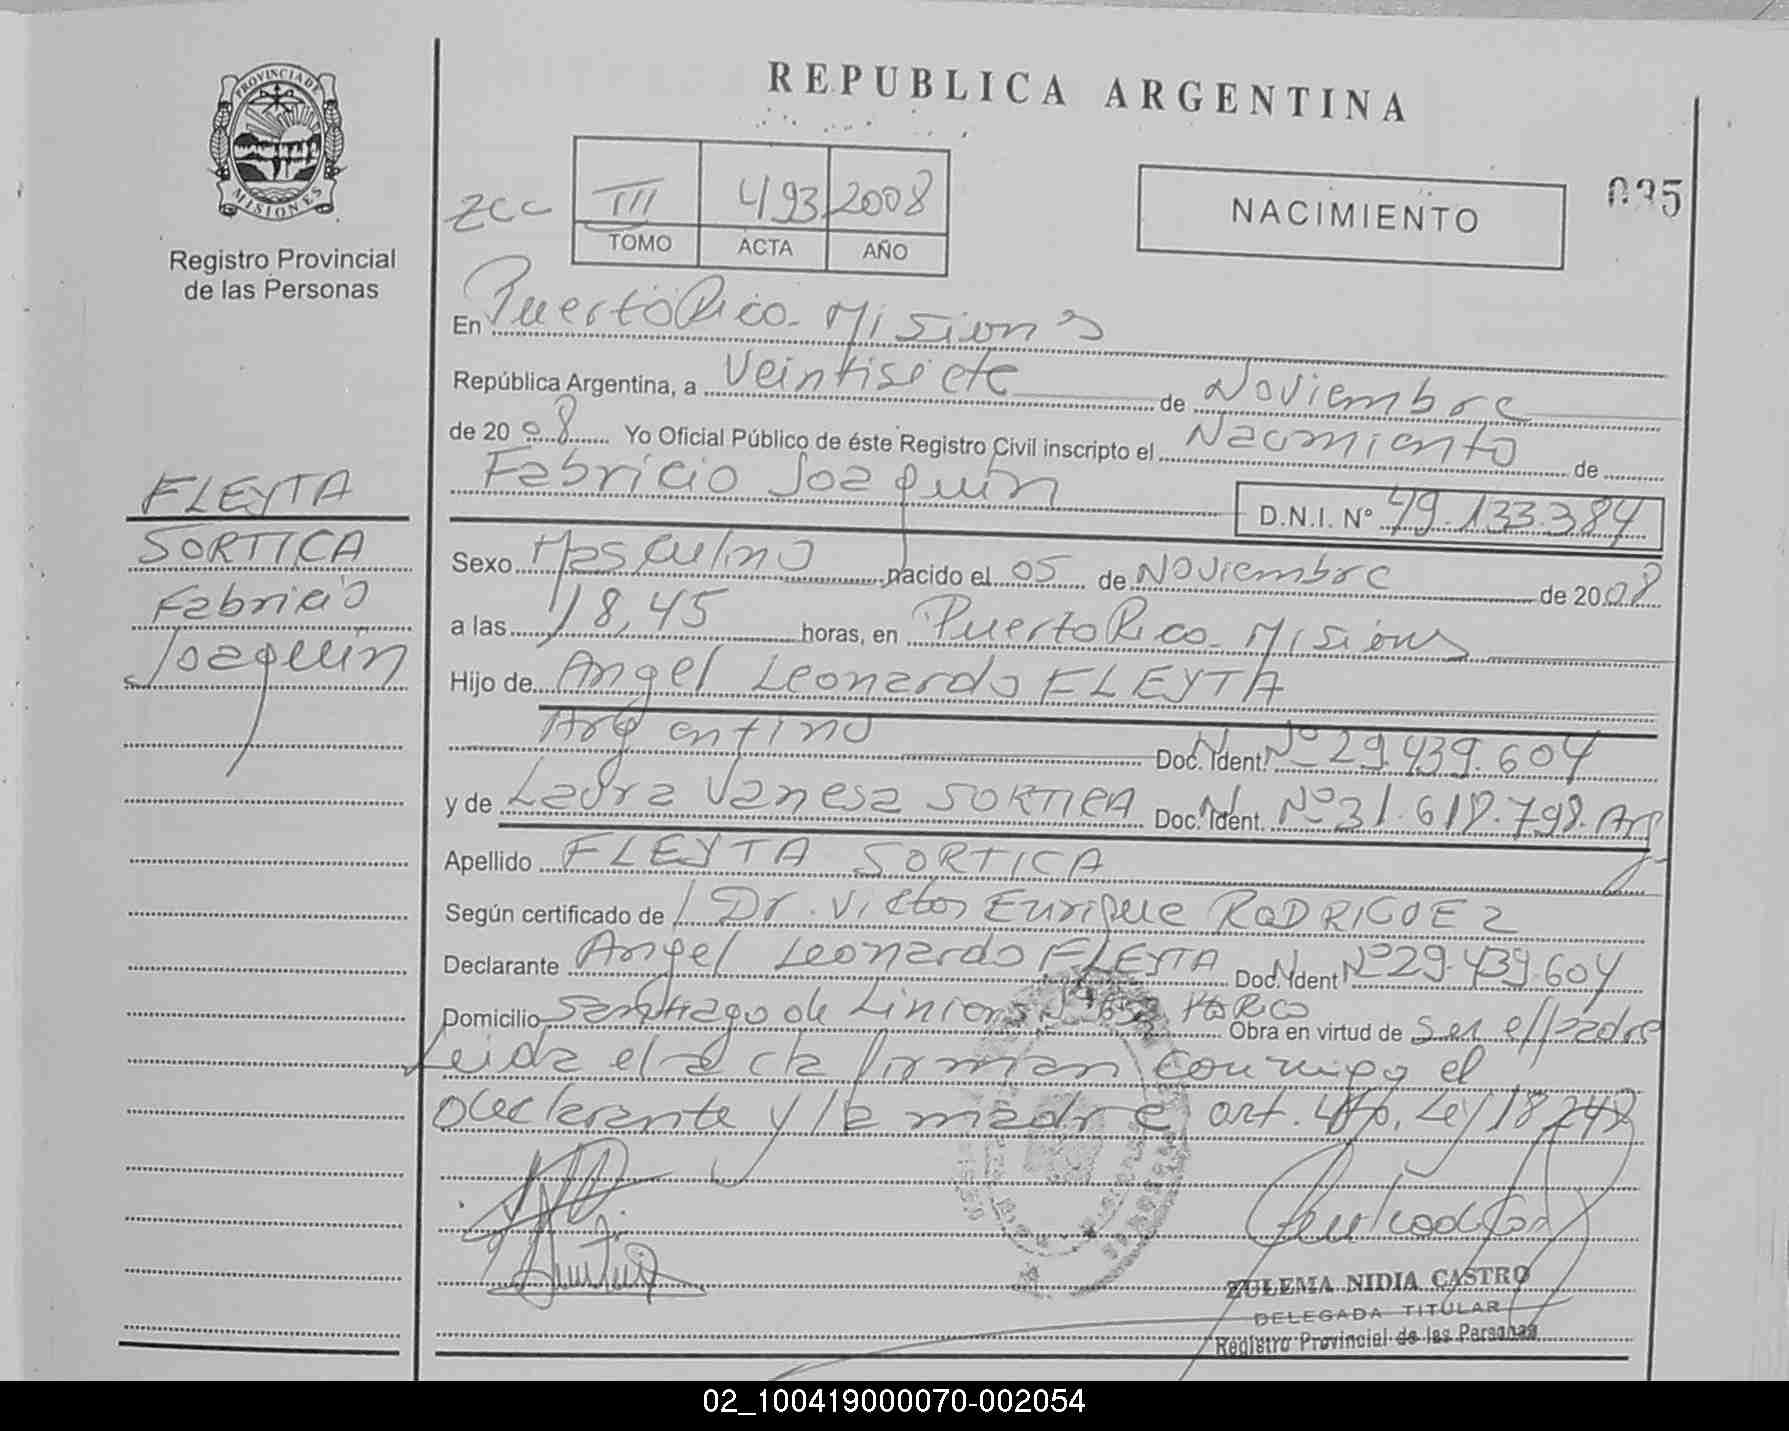 REPUBLICA ARGENTINA
PROVINCIA DE MISIONES
Registro Provincial
de las Personas
zcc
III 493 2008
TOMO ACTA AÑO
NACIMIENTO
035
En Puerto Rico - Misiones
República Argentina, a Veintisiete de Noviembre
de 2008 Yo Oficial Público de éste Registro Civil inscripto el Nacimiento de
Fabricio Joaquin
D.N.I. Nº 49.133.384
FLEYTA
SORTICA
Fabricio
Joaquin
Sexo Masculino nacido el 05 de Noviembre de 2008
a las 18,45 horas, en Puerto Rico - Misiones
Hijo de Angel Leonardo FLEYTA
Argentino Doc. Ident. Nº 29.439.604
y de Laura Vanesa SORTICA Doc. Ident. Nº 31.618.798. Arg
Apellido FLEYTA SORTICA
Según certificado de Dr. Victor Enrique RODRIGUEZ
Declarante Angel Leonardo FLEYTA Doc. Ident Nº 29.439.604
Domicilio Santiago de Liniers Obra en virtud de ser el padre
Leida el acta firman conmigo el
declarante y la madre art. 4to. Ley 18248
ZULEMA NIDIA CASTRO
DELEGADA TITULAR
Registro Provincial de las Personas
02_100419000070-002054